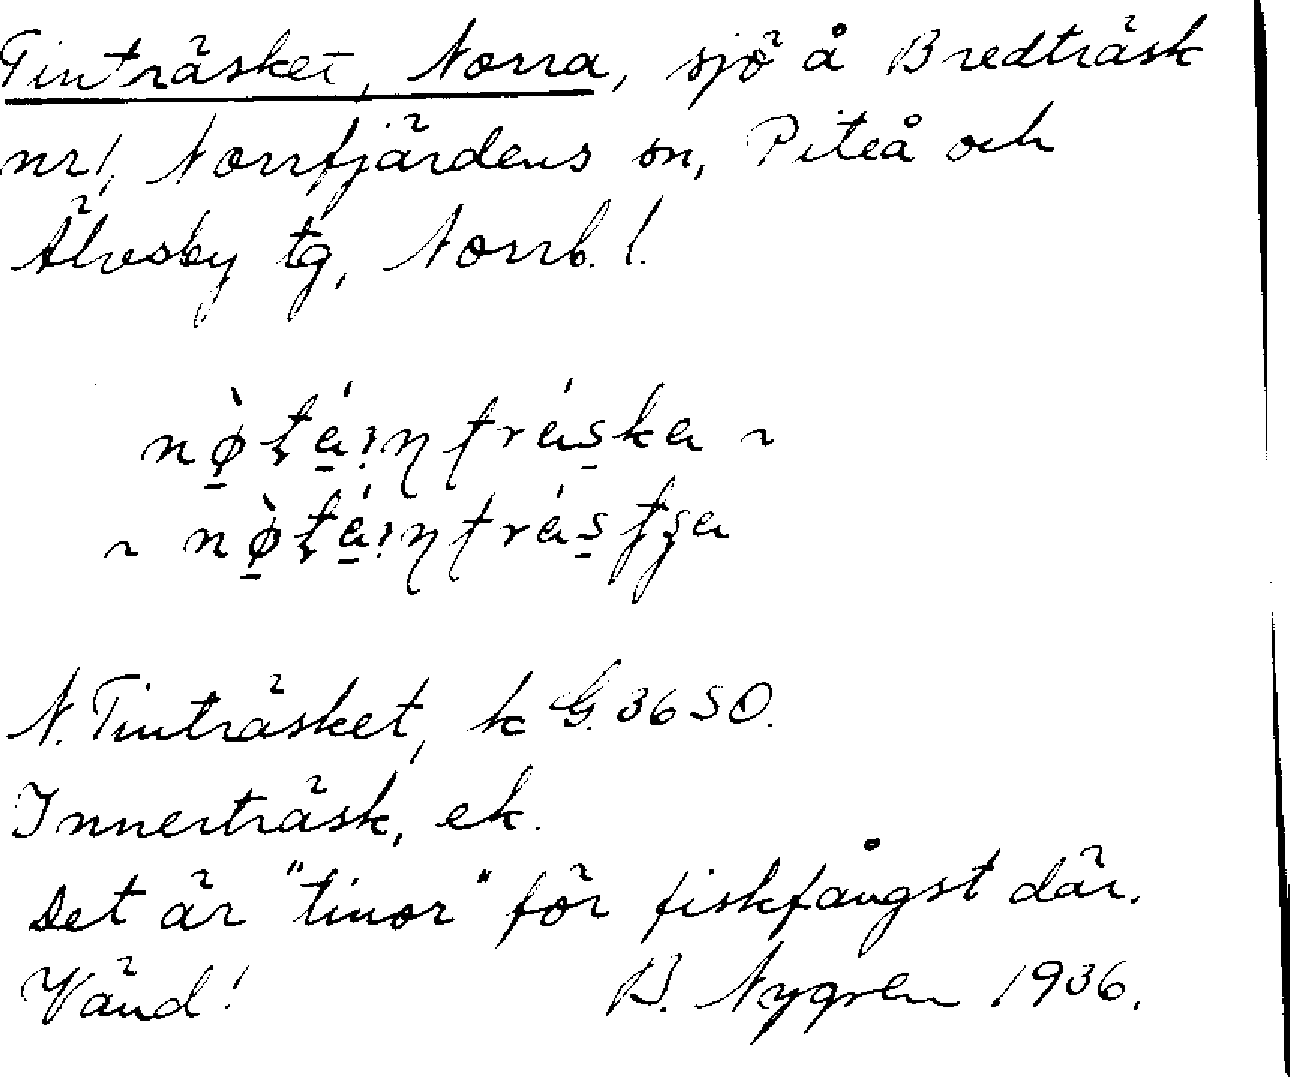 Tinträsket, Norra, sjö å Bredträsk
nr 1, Norrfjärdens sn, Piteå och
Älvsby tg, Norrb. l.
N. Tinträsket, k G. 36 SO.
Innerträsk, ek.
Det är "tinor" för fiskfångst där.
Vänd! B. Nygren 1936.